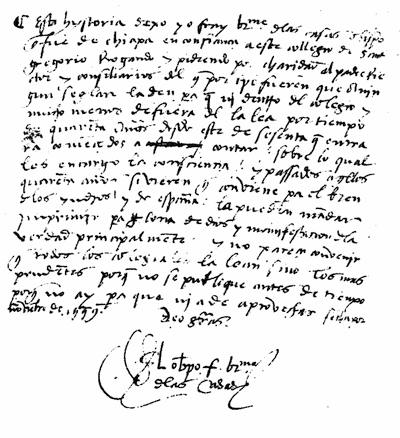 Esta historia dexo yo fray brme delas casas obispo
q fue de chiapa en confiança a este collegio de sant
gregorio Rogando y pidiendo por charidad al padre Re
ctor y consiliarios del q por tpo fueren que a nin
gun seglar la den pa q ni dentro del colegio y
mucho menos de fuera del la lea por tiempo
de quarenta años desde este de sesenta q entra
ra començados a contar sobre lo qual
les encargo la consciencia. y passados aqllos
quarenta años si vieren q conviene pa el bien
delos yndios y de españa la pueden mandar
ymprimir pa gloria de dios y manifestacion dla
verdad principalmente y no parece convenir
q todos los colegiales la lean sino los mas
prudentes porq no se publique antes de tiempo
porq no ay pa que ni a de aprovechar fecha por
novienbre de 1559.
Deo gras.
El obpo f. brme
delas casas